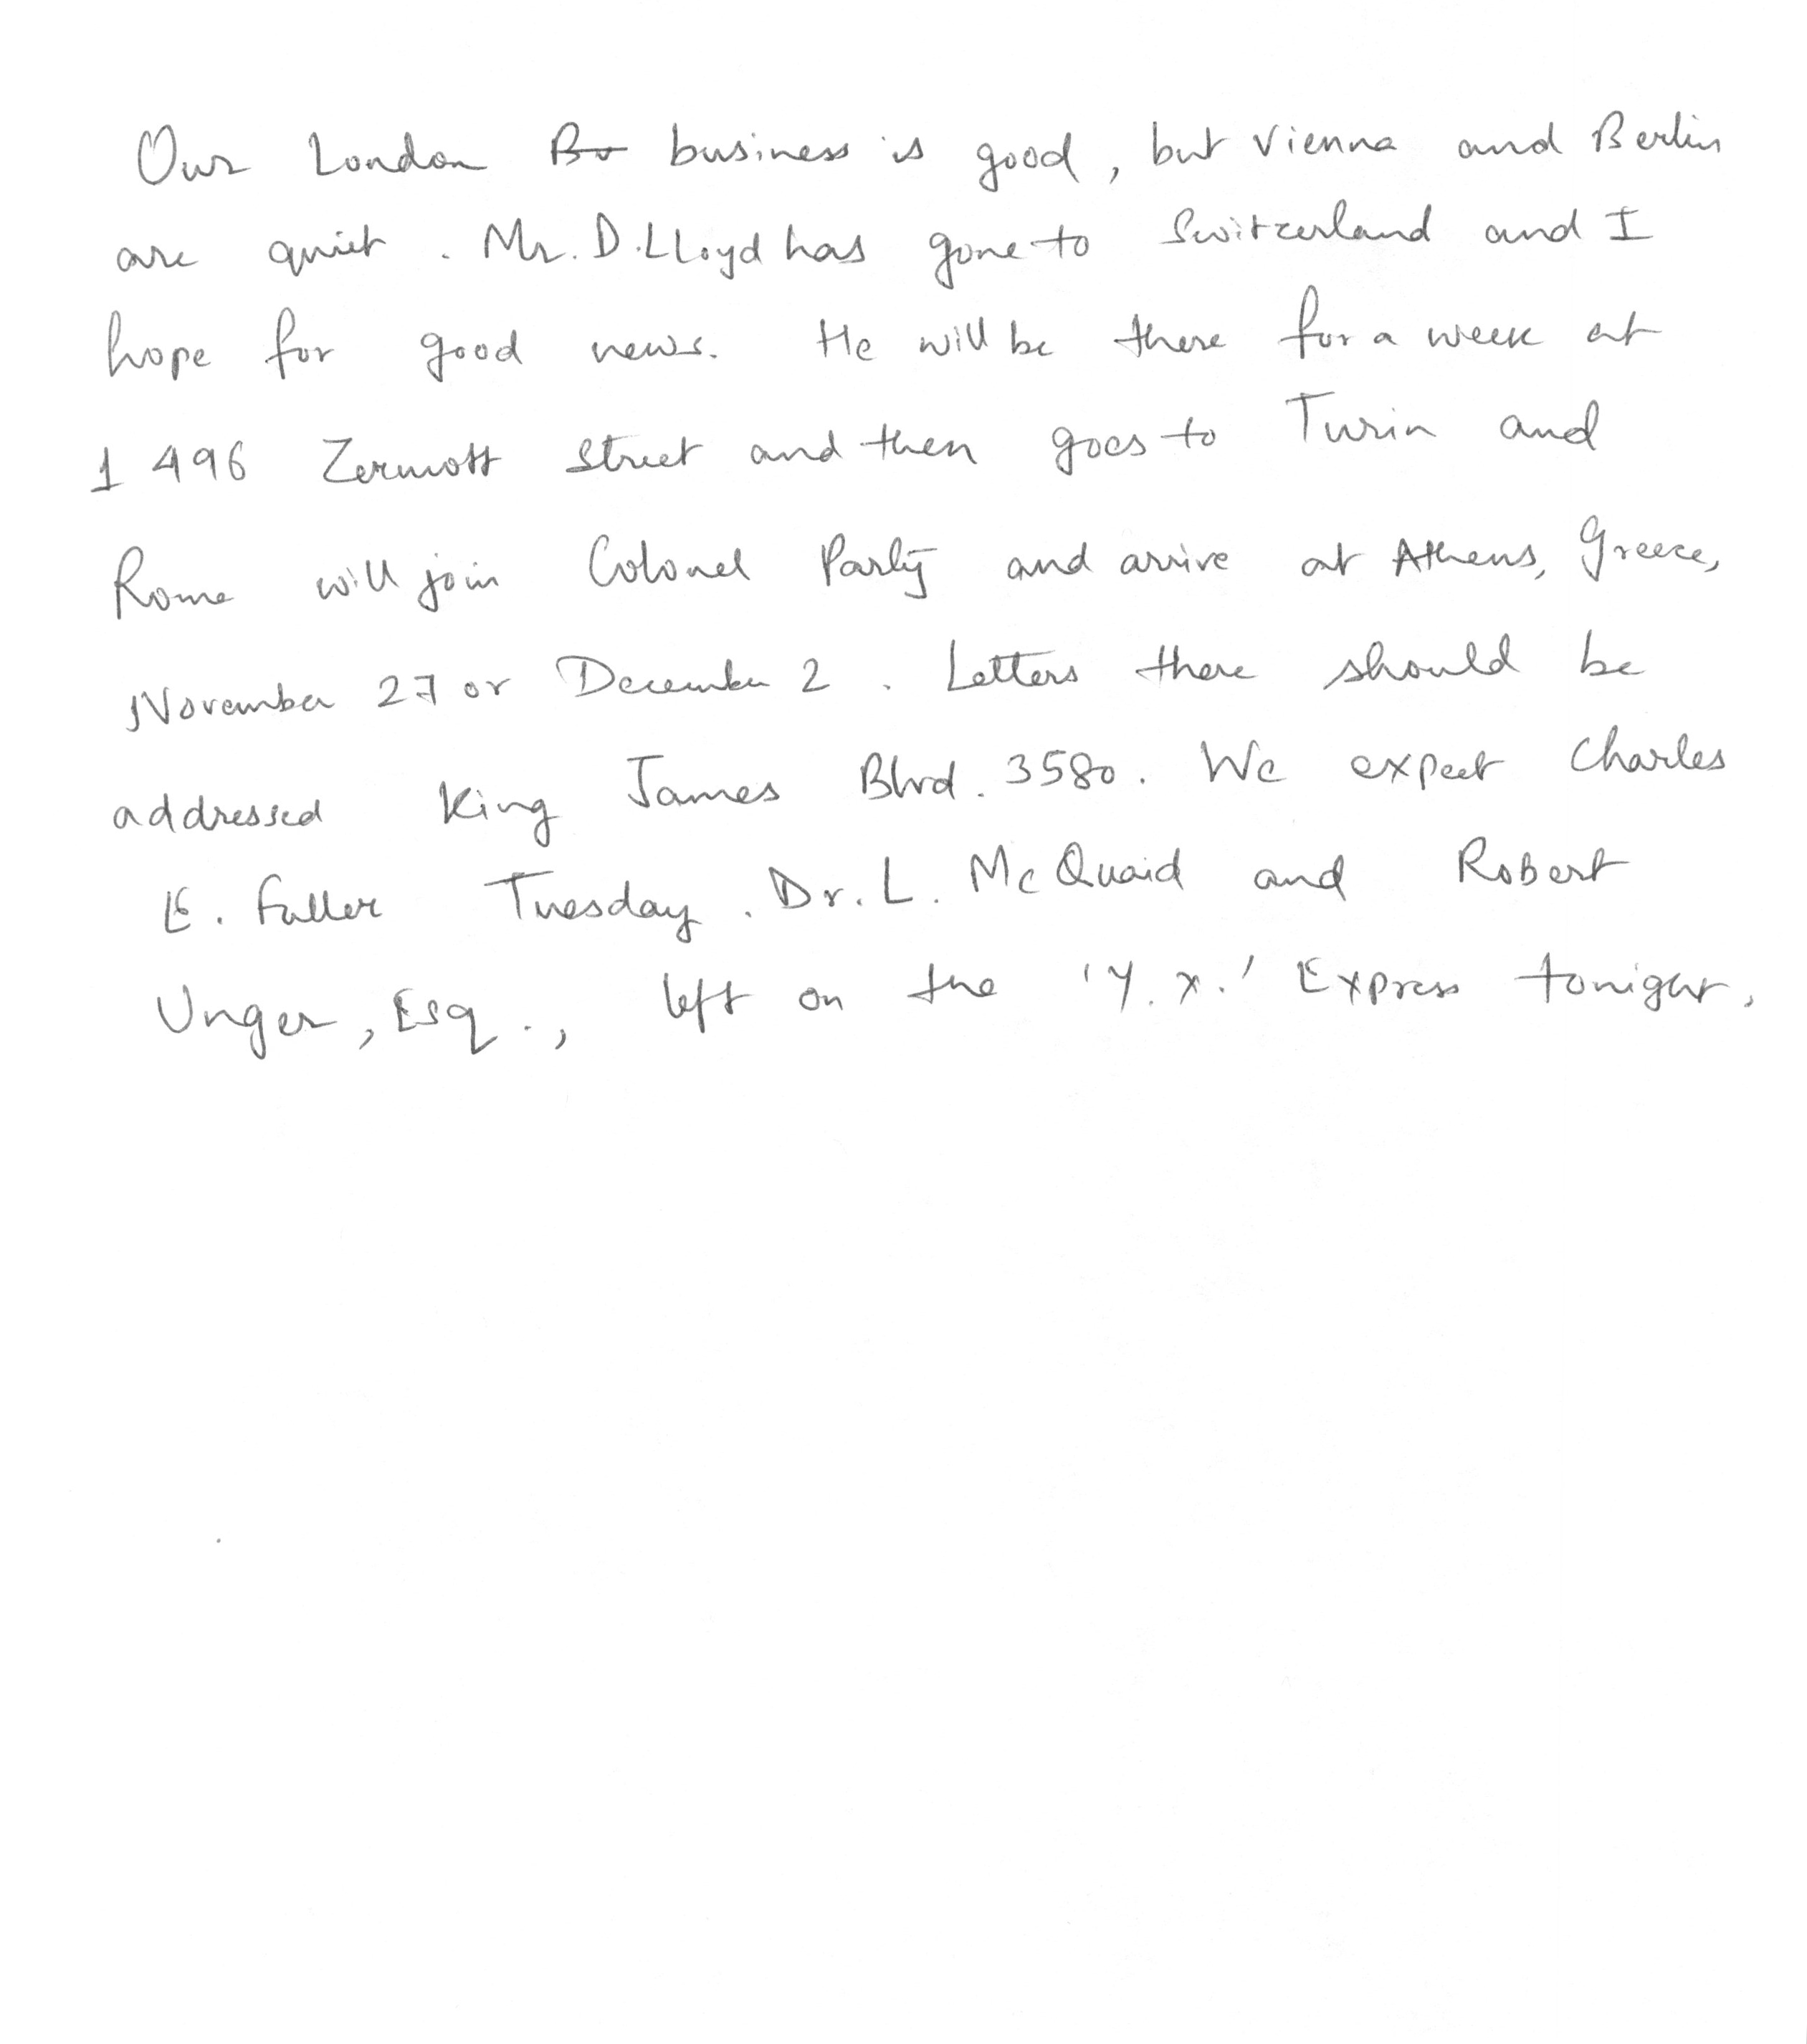 Our London Bu business is good, but Vienna and Berlin
are quiet. Mr. D. LLoyd has gone to Switzerland and I
hope for good news. He will be there for a week at
1496 Zermott Street and then goes to Turin and
Rome will join Colonel Party and arrive at Athens, Greece,
November 27 or December 2. Letters there should be
addressed King James Blvd. 3580. We expect Charles
E. Fuller Tuesday. Dr. L. McQuaid and Robert
Unger, Esq., left on the 'Y.X.' Express tonight.